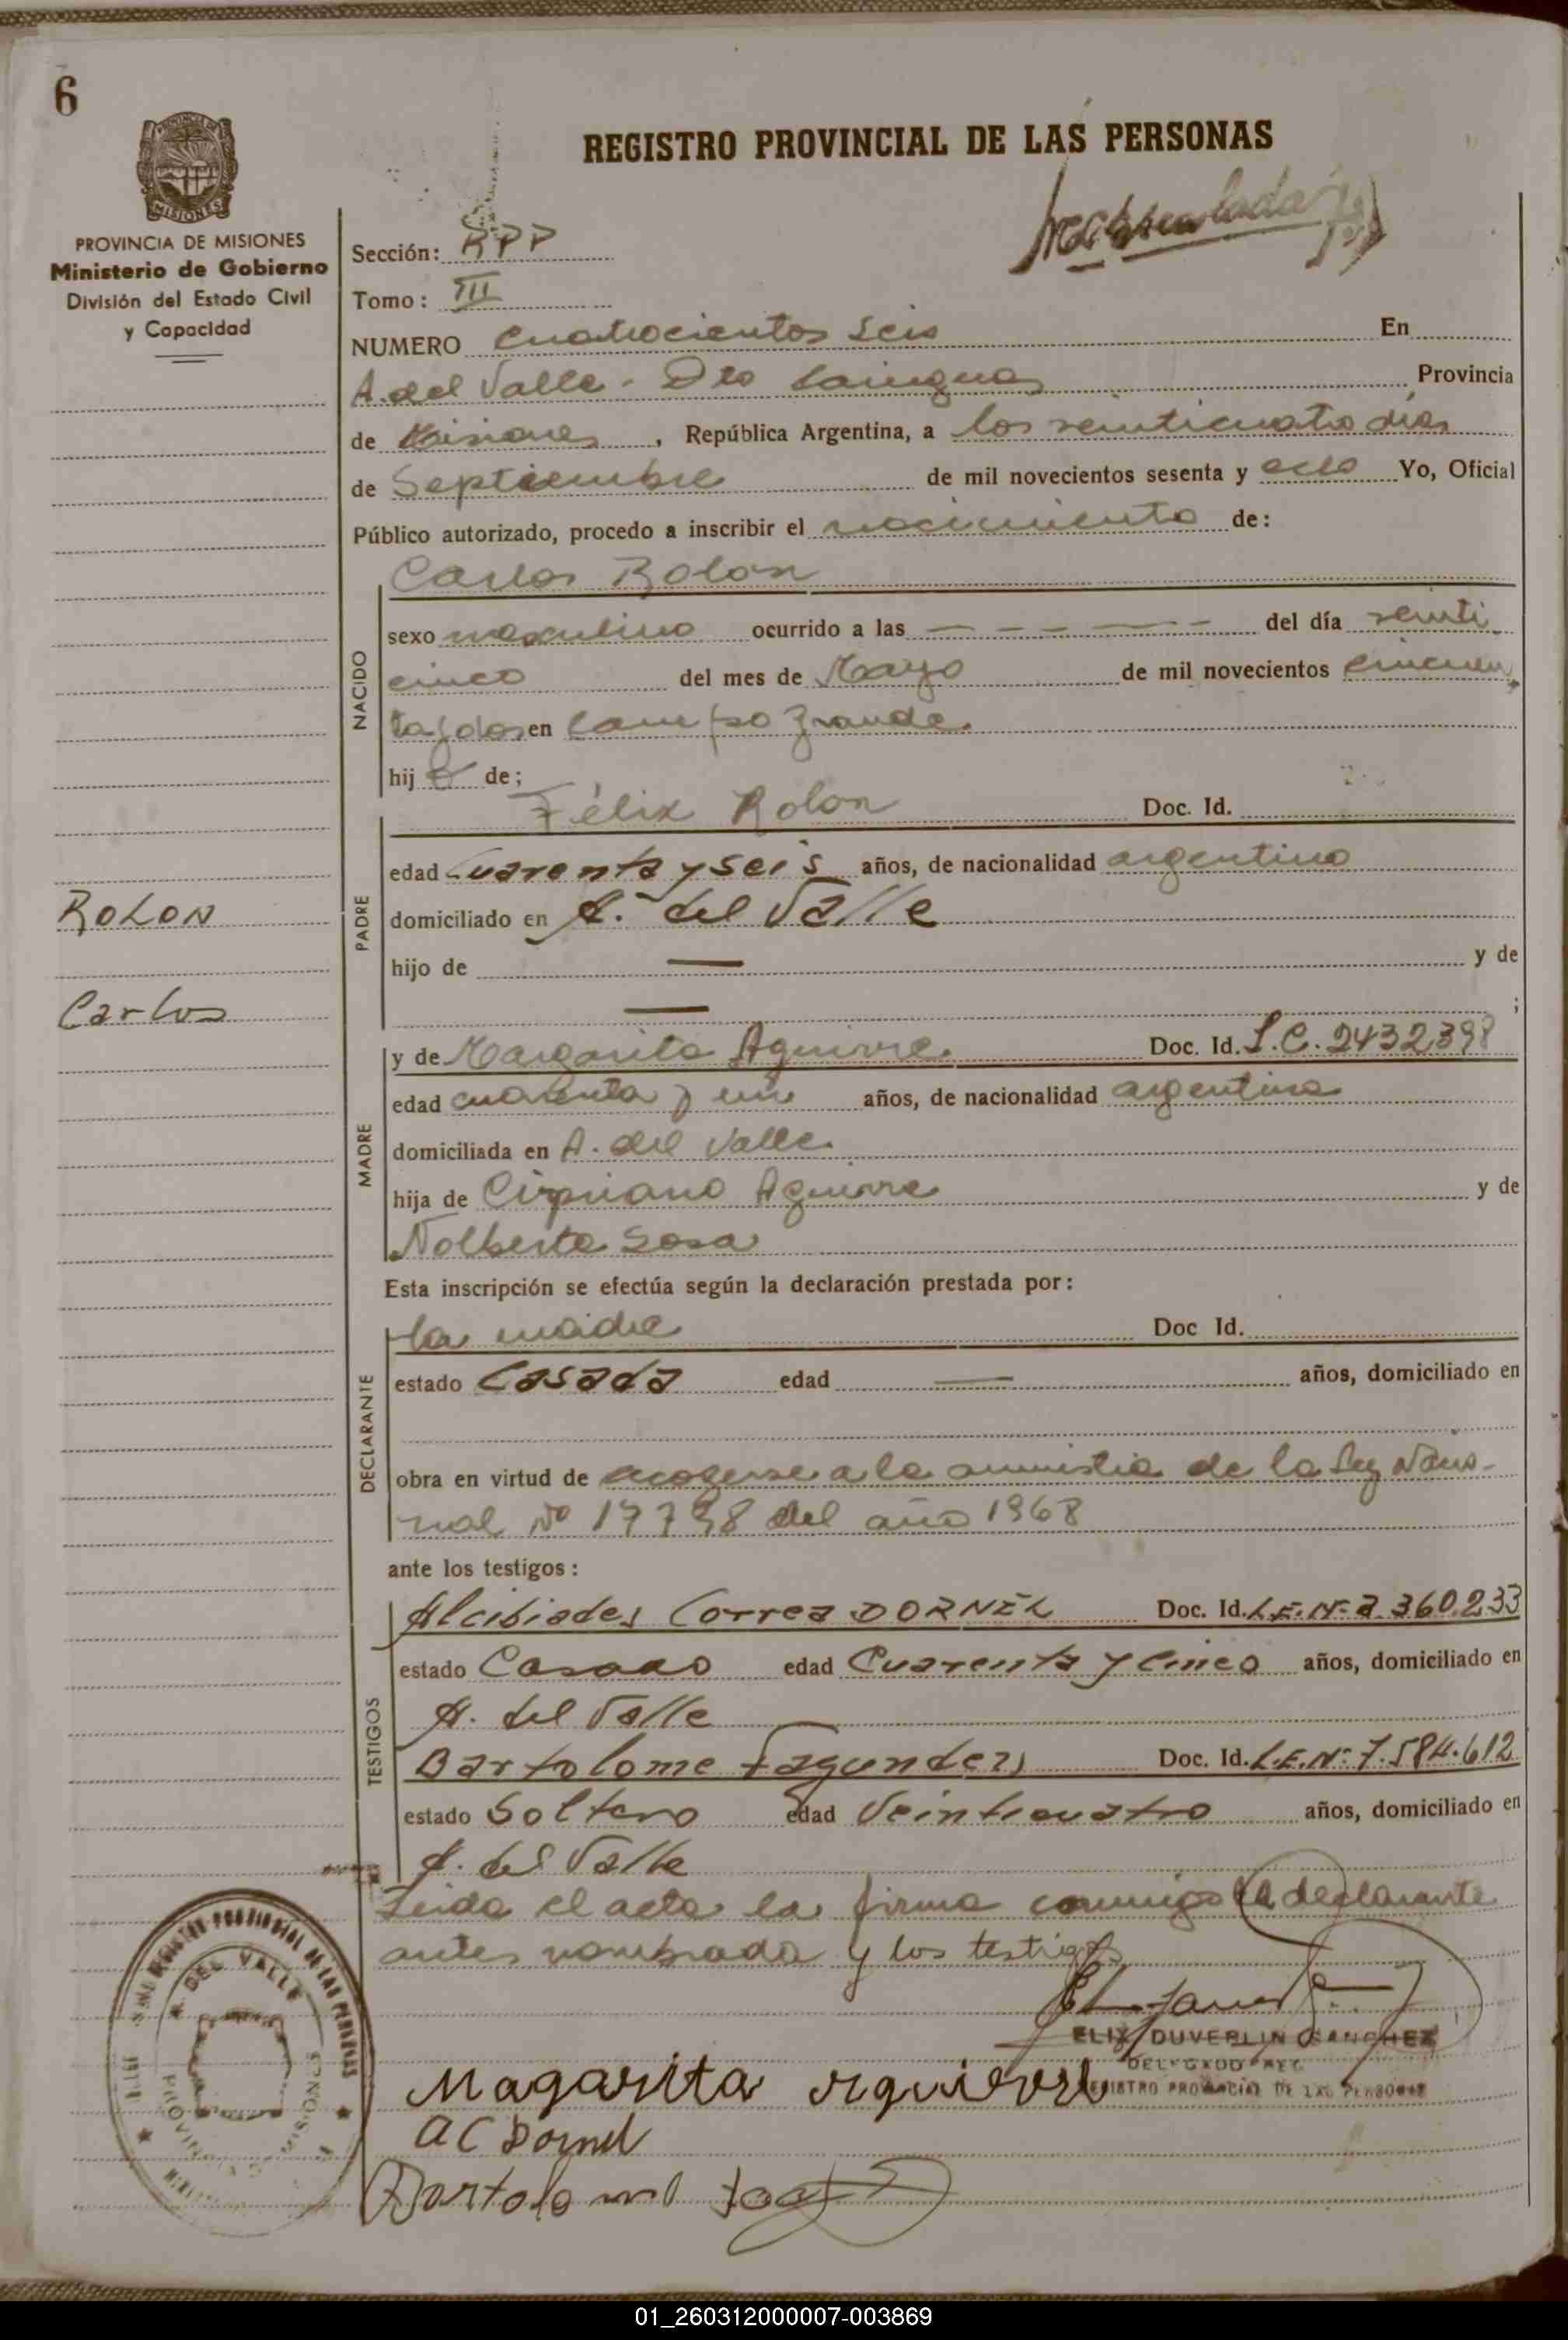 6
REGISTRO PROVINCIAL DE LAS PERSONAS
MISIONES
PROVINCIA DE MISIONES
Ministerio de Gobierno
División del Estado Civil
y Capacidad
Sección: RPP
Tomo: III
NUMERO Cuatrocientos Seis En
A. del Valle - Dto Cainguas Provincia
de Misiones, República Argentina, a los veinticuatro días
de Septiembre de mil novecientos sesenta y ocho Yo, Oficial
Público autorizado, procedo a inscribir el nacimiento de:
NACIDO
Carlos Rolon
sexo masculino ocurrido a las — — — — — del día veinti
cinco del mes de Mayo de mil novecientos cincuen
ta y dos en Campo Grande.
hijo de;
PADRE
Félix Rolon Doc. Id.
edad Cuarenta y seis años, de nacionalidad argentino
domiciliado en A. del Valle
hijo de — y de
— ;
ROLON
Carlos
MADRE
y de Margarita Aguirre. Doc. Id. L.C. 2432398
edad cuarenta y un años, de nacionalidad argentina
domiciliada en A. del Valle.
hija de Cipriano Aguirre y de
Nolberta Sosa
Esta inscripción se efectúa según la declaración prestada por:
DECLARANTE
la madre Doc Id.
estado Casada edad — años, domiciliado en
obra en virtud de acogerse a la amnistia de la Ley Nacio-
nal Nº 17798 del año 1968
ante los testigos:
TESTIGOS
Alcibiades Correa DORNEL Doc. Id. L.E. Nº 2.360.233
estado Casado edad Cuarenta y Cinco años, domiciliado en
A. del Valle
Bartolome Fagundez Doc. Id. L.E. Nº 7.584.612
estado Soltero edad Veinticuatro años, domiciliado en
A. del Valle
Leida el acta la firma conmigo la declarante
antes nombrada y los testigos
ELIX DUVERLIN SANCHEZ
REGISTRO PROVINCIAL DE LAS PERSONAS
REGISTRO PROVINCIAL DE LAS PERSONAS
A. DEL VALLE
PROVINCIA MISIONES
Magarita Aguirre
AC Dornel
Bartolome
01_260312000007-003869